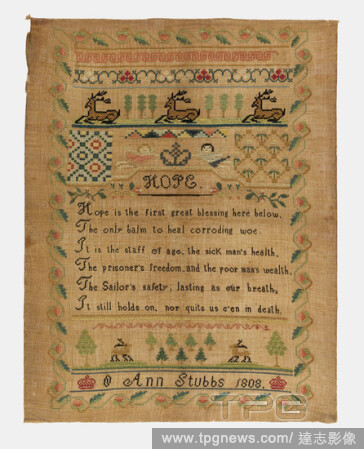 HOPE
Hope is the first great blessing here below,
The only balm to heal corroding woe.
It is the staff of age, the sick man's health,
The prisoner's freedom, and the poor man's wealth,
The Sailor's safety; lasting as our breath,
It still holds on, nor quits us e'en in death.
O Ann Stubbs 1808.
TPG
www.tpgnews.com/ 達志影像